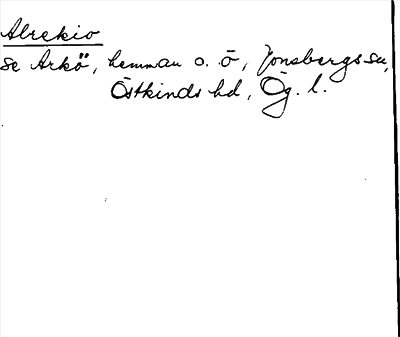 Alrekio
se Arkö, hemman o. ö, Jonsbergs sn,
Östkinds hd, Ög. l.